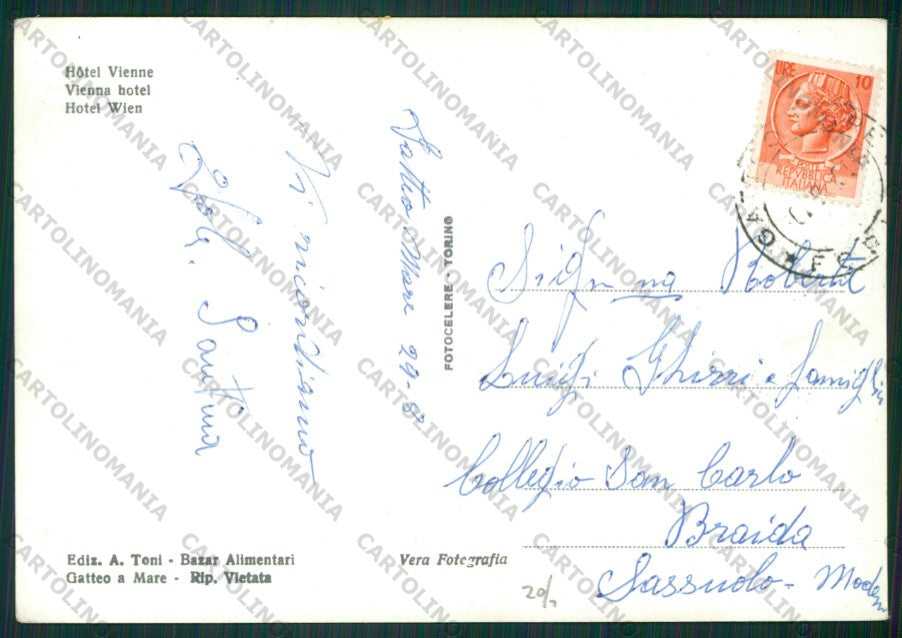 Hôtel Vienne
Vienna hotel
Hotel Wien
LIRE 10
POSTE
REPVBBLICA
ITALIANA
Gatteo Mare 29-8
Vi ricordiamo
Santina
FOTOCELERE - TORINO
Sig.na Roberta
Luigi Ghirri e famiglia
Collegio San Carlo
Braida
Sassuolo - Modena
Ediz. A. Toni - Bazar Alimentari
Gatteo a Mare - Rip. Vietata
Vera Fotografia
CARTOLINOMANIA